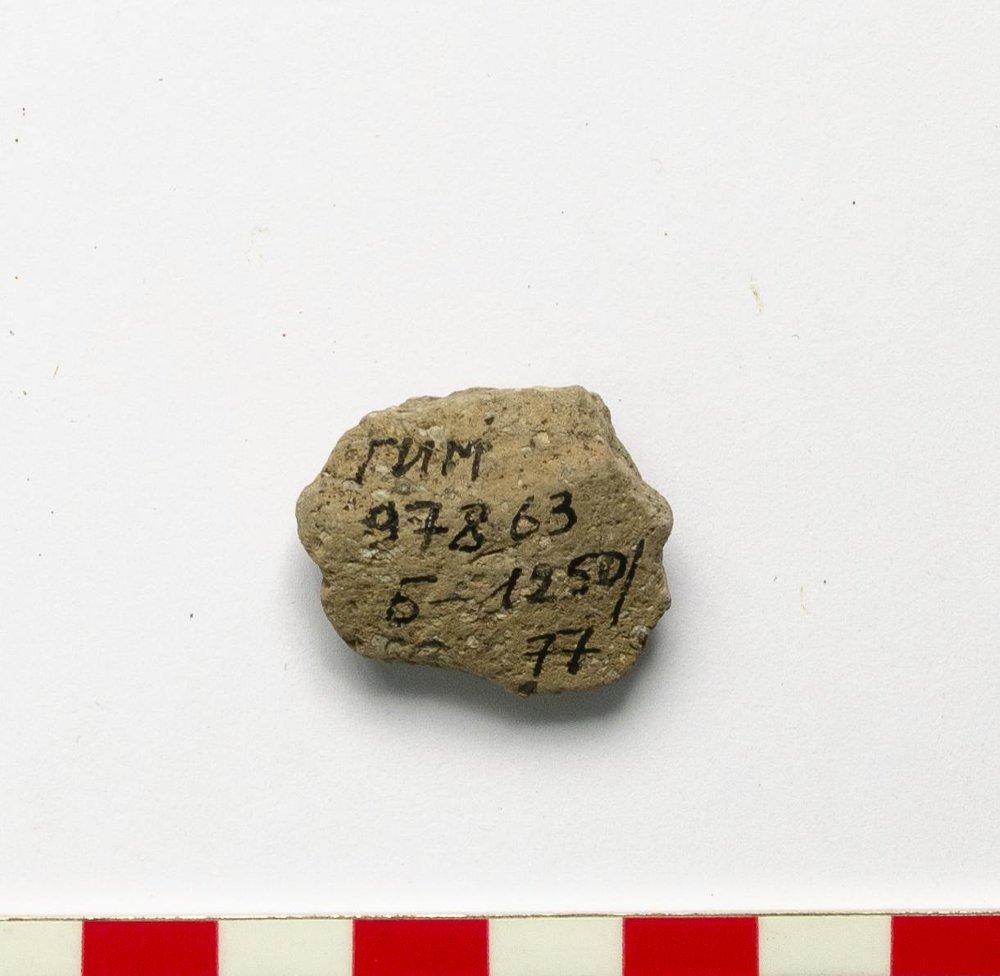 ГИМ
97863
Б-1250/
77